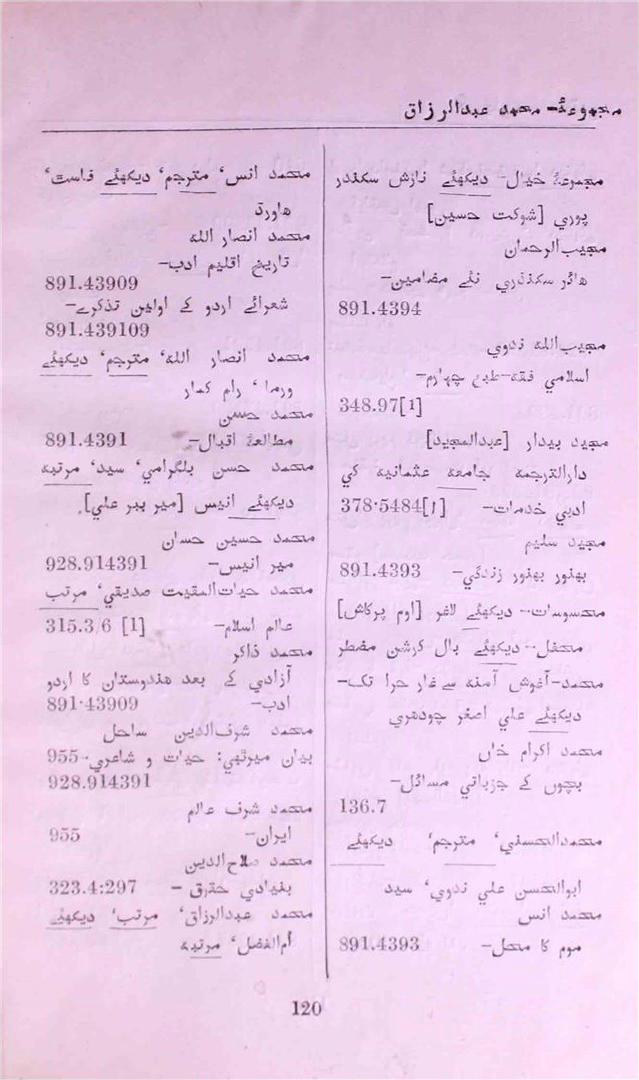 مجموعۂ- محمد عبدالرزاق
مجموعۂ خیال- دیکھئے نازش سکندر
پوری [شوکت حسین]
مجیب‌الرحمان
هائر سکنڈری نئے مضامین-
891.4394
مجیب‌الله ندوی
اسلامی فقه-طبع چہارم-
348.97[1]
مجید بیدار [عبدالمجید]
دارالترجمه جامعه عثمانیه کی
ادبی خدمات- 378·5484[1]
مجید سلیم
بھنور بھنور زندگی- 891.4393
محسوسات- دیکھئے لاغر [اوم پرکاش]
محفل- دیکھئے بال کرشن مضطر
محمد-آغوش آمنه سے غار حرا تک-
دیکھئے علی اصغر چودھری
محمد اکرام خاں
بچوں کے جزباتی مسائل-
136.7
محمدالحسنی، مترجم، دیکھئے
ابوالحسن علی ندوی، سید
محمد انس
موم کا محل- 891.4393
محمد انس، مترجم، دیکھئے فاسٹ،
هاورڈ
محمد انصار الله
تاریخ اقلیم ادب-
891.43909
شعرائے اردو کے اولین تذکرے-
891.439109
محمد انصار الله، مترجم، دیکھئے
ورما، رام کمار
محمد حسن
مطالعۂ اقبال- 891.4391
محمد حسن بلگرامی، سید، مرتبه
دیکھئے انیس [میر ببر علی].
محمد حسین حسان
میر انیس- 928.914391
محمد حیات‌المقیت صدیقی، مرتب
عالم اسلام- 315.3/6 [1]
محمد ذاکر
آزادی کے بعد هندوستان کا اردو
ادب- 891·43909
محمد شرف‌الدین ساحل
بیان میرٹھی: حیات و شاعری- 955
928.914391
محمد شرف عالم
ایران- 955
محمد صلاح‌الدین
بنیادی حقوق - 323.4:297
محمد عبدالرزاق، مرتب، دیکھئے
أم‌الفضل، مرتبه
120